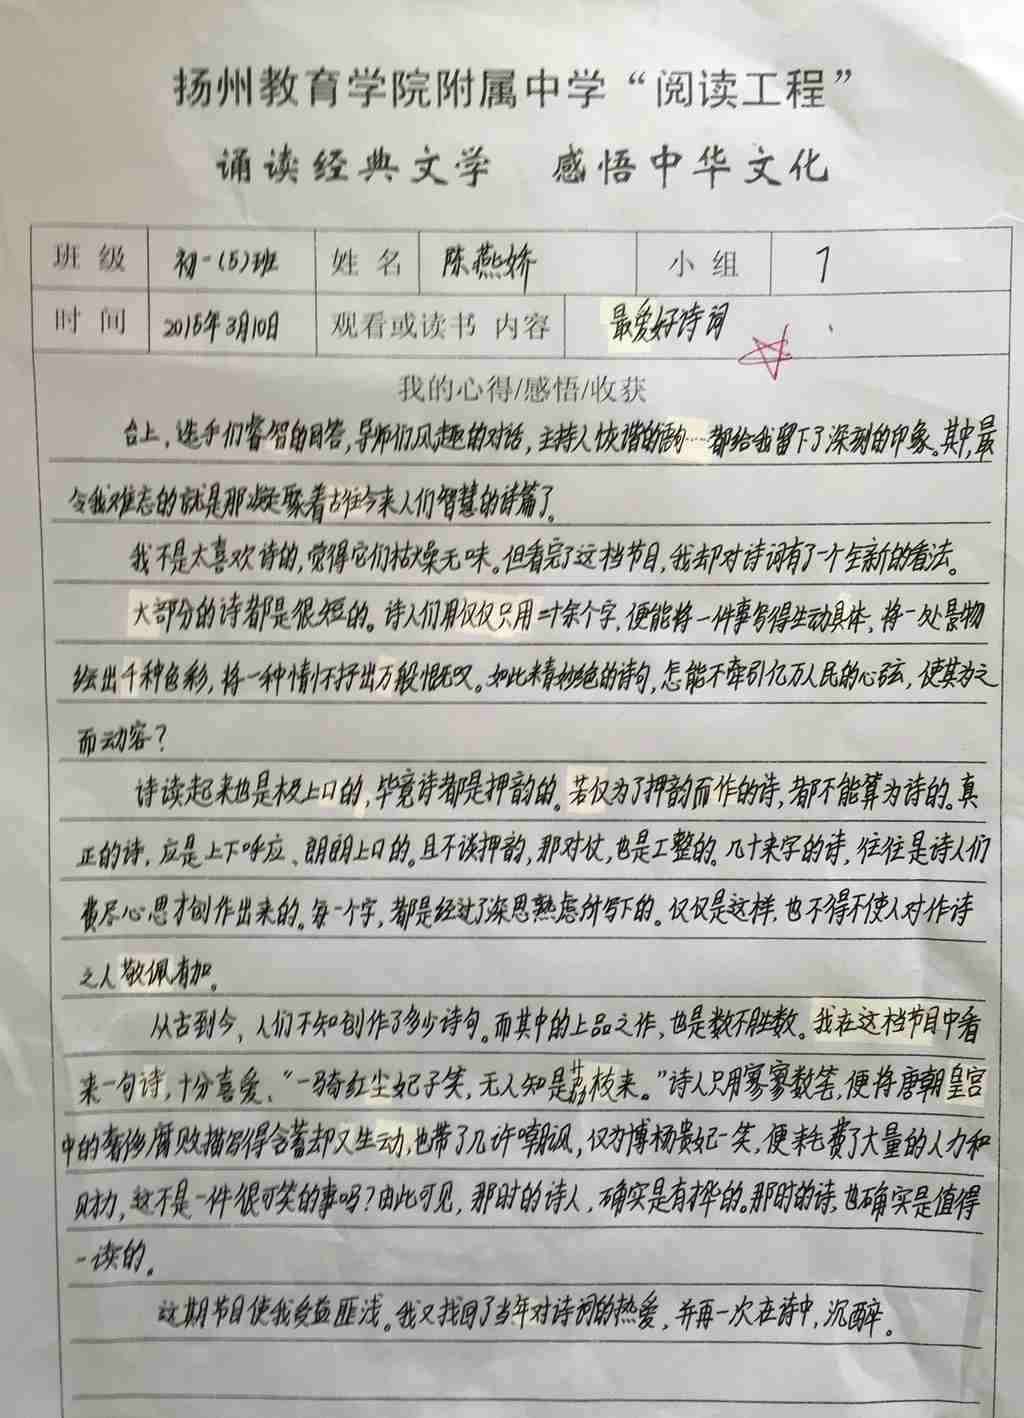 扬州教育学院附属中学“阅读工程”
诵读经典文学 感悟中华文化
班 级 初一(5)班 姓 名 陈燕娇 小 组 7
时 间 2015年3月10日 观看或读书 内容 最爱好诗词
我的心得/感悟/收获
台上，选手们睿智的回答，导师们风趣的对话，主持人诙谐的……都给我留下了深刻的印象。其中，最
令我难忘的就是那凝聚着古往今来人们智慧的诗篇了。
我不是太喜欢诗的，觉得它们枯燥无味。但看完了这档节目，我却对诗词有了一个全新的看法。
大部分的诗都是很短的。诗人们用仅仅只用二十余个字，便能将一件事写得生动具体，将一处景物
绘出千种色彩，将一种情怀抒出万般慨叹。如此精妙绝的诗句，怎能不牵引亿万人民的心弦，使其为之
而动容？
诗读起来也是极上口的，毕竟诗都是押韵的。若仅为了押韵而作的诗，都不能算为诗的。真
正的诗，应是上下呼应、朗朗上口的。且不谈押韵，那对仗，也是工整的。几十来字的诗，往往是诗人们
费尽心思才创作出来的。每一个字，都是经过了深思熟虑所写下的。仅仅是这样，也不得不使人对作诗
之人敬佩有加。
从古到今，人们不知创作了多少诗句。而其中的上品之作，也是数不胜数。我在这档节目中看
来一句诗，十分喜爱、“一骑红尘妃子笑，无人知是荔枝来。”诗人只用寥寥数笔，便将唐朝皇宫
中的奢侈腐败描写得含蓄却又生动，也带了几许嘲讽，仅为博杨贵妃一笑，便耗费了大量的人力和
财力，这不是一件很可笑的事吗？由此可见，那时的诗人，确实是有才华的。那时的诗，也确实是值得
一读的。
这期节目使我受益匪浅。我又找回了当年对诗词的热爱，并再一次在诗中，沉醉。